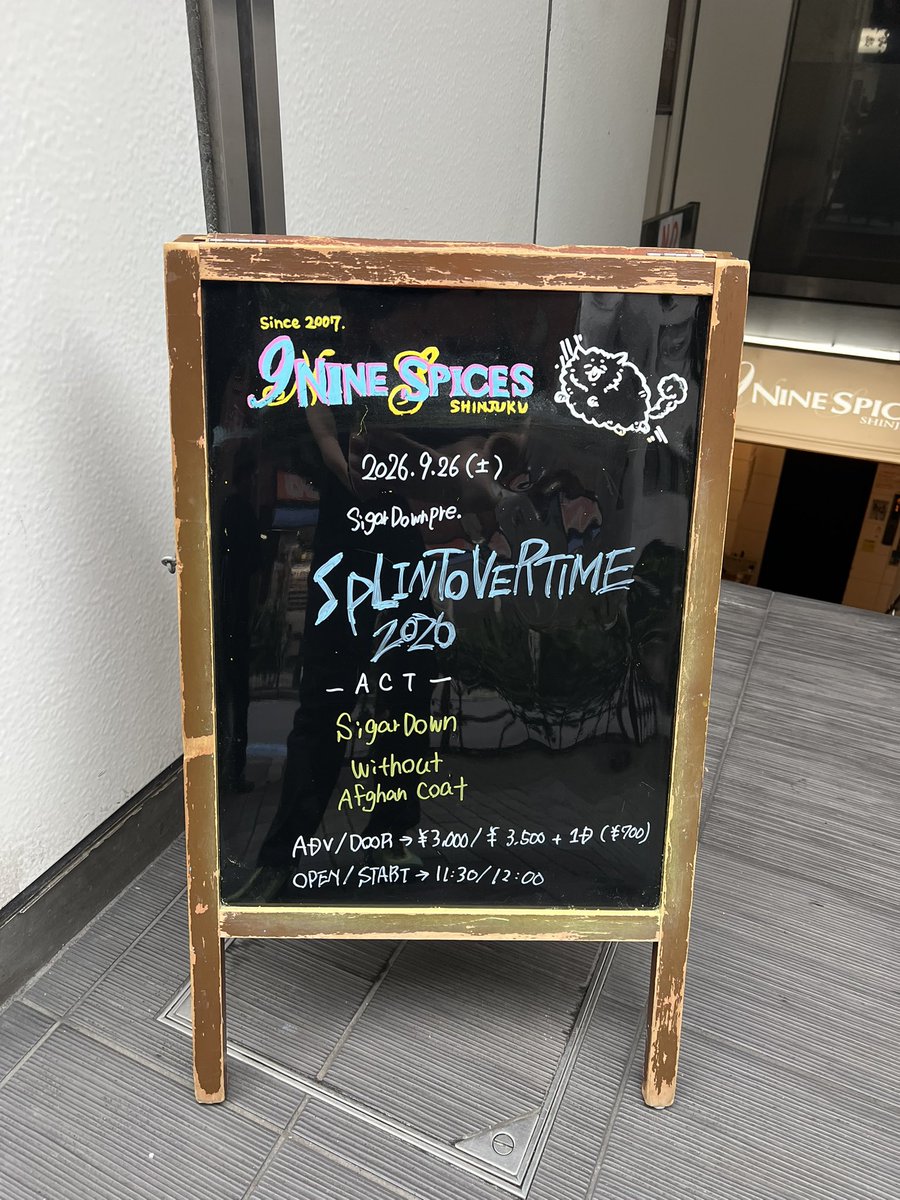 Since 2007.
9 NINE SPICES
SHINJUKU
2026.9.26(土)
SigarDown pre.
SPLINTOVERTIME
2026
- ACT -
SigarDown
Without
Afghan Coat
ADV/DOOR→¥3,000/¥3,500+1D(¥700)
OPEN/START→11:30/12:00
9 NINE SPIC
SHINJ